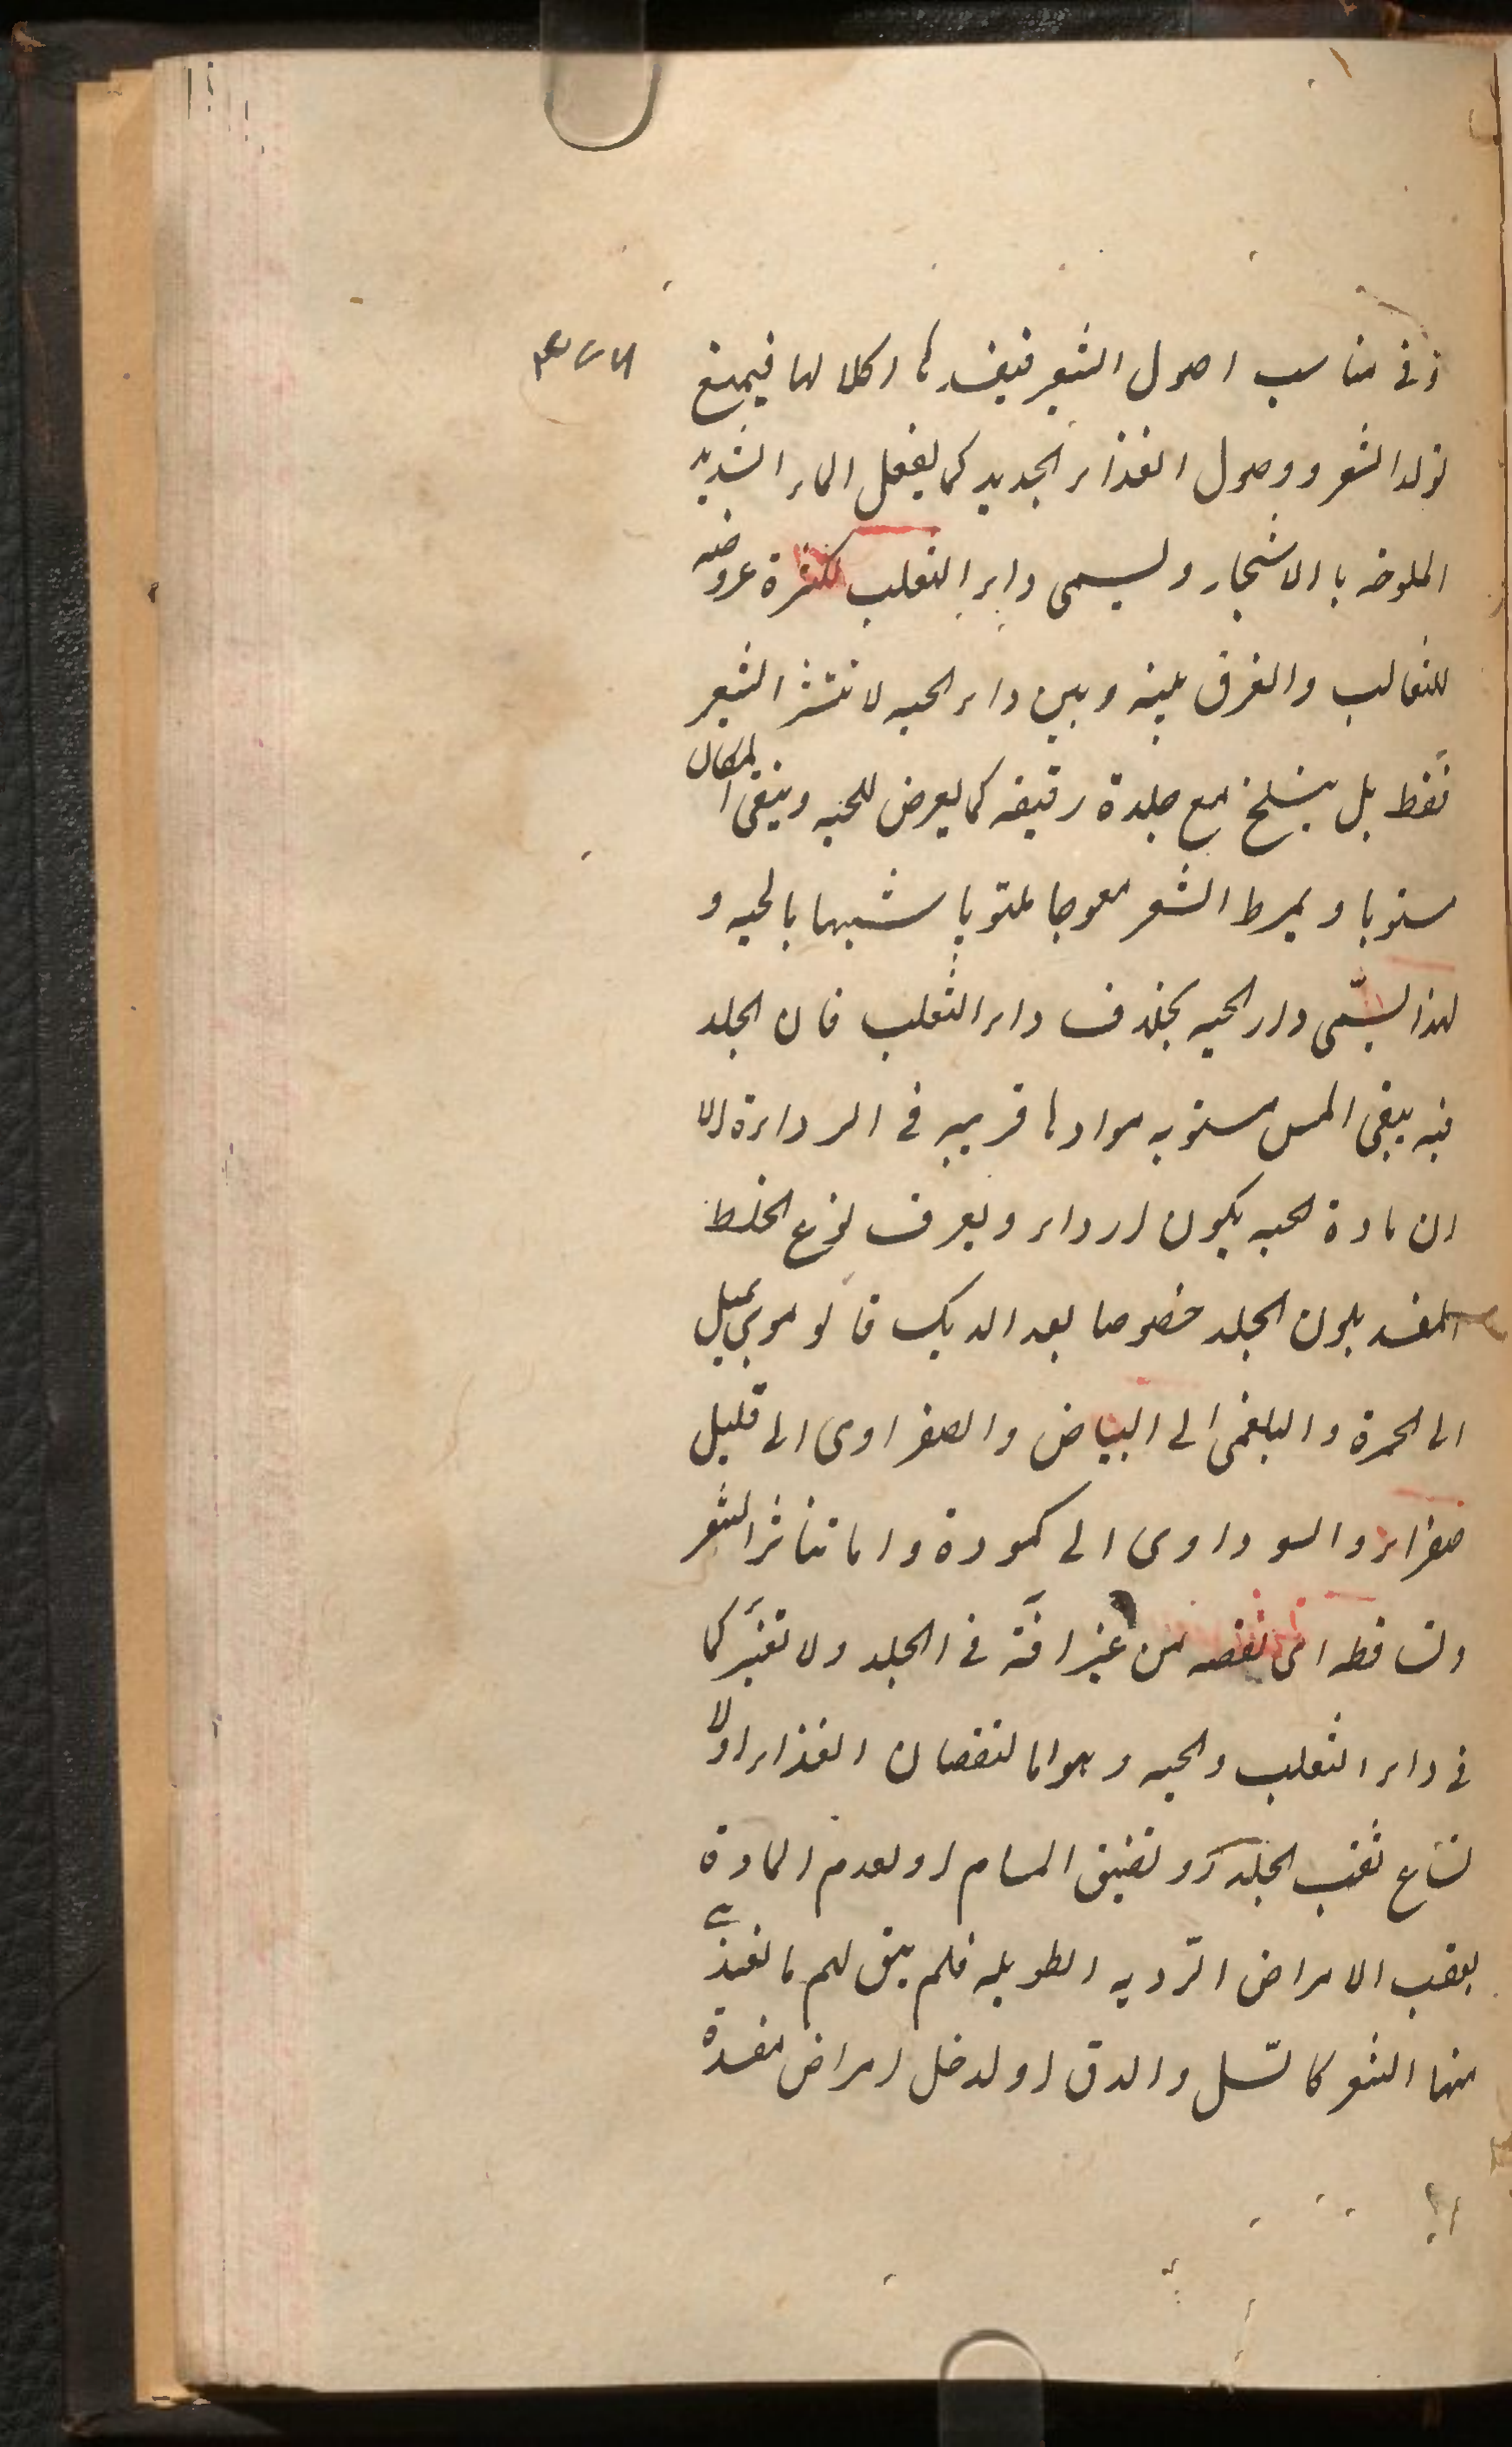 فى مناسب اصول الشعر فيفسدها اكلا لها فيمنع
تولد الشعر ووصول الغذاء الجديد كما يفعل الماء الشديد
الملوحه بالاشجار ويسمى داء الثعلب لكثرة عروضه
للثعالب والفرق بينه وبين داء الحيه لا ينتثر الشعر
فقط بل ينسلخ مع جلدة رقيقه كما يعرض للحيه ويبقى المكان
مستويا ويمرط الشعر معوجا ملتويا شبيها بالحيه و
لهذا يسمّى داء الحيه بخلاف داء الثعلب فان الجلد
فيه يبقى املس مستويه موادها قريبه فى الرداءة الا
ان مادة الحيه يكون ارداء ويعرف نوع الخلط
المفسد بلون الجلد خصوصا بعد الدلك فالدموى يميل
الى الحمرة والبلغمى الى البياض والصفراوى الى قليل
صفراء والسوداوى الى كمودة واما تناثر الشعر
وتساقطه اى نقصه من غير افة فى الجلد ولا تغيّر كما
فى داء الثعلب والحيه وهو اما لنقصان الغذاء اولا
تساع ثقب الجلد او تضيق المسام او لعدم المادة
بعقب الامراض الرّديه الطويله فلم يبق لهم ما يغتذى
منها الشعر كالسّل والدق او لدخل امراض مفسدة